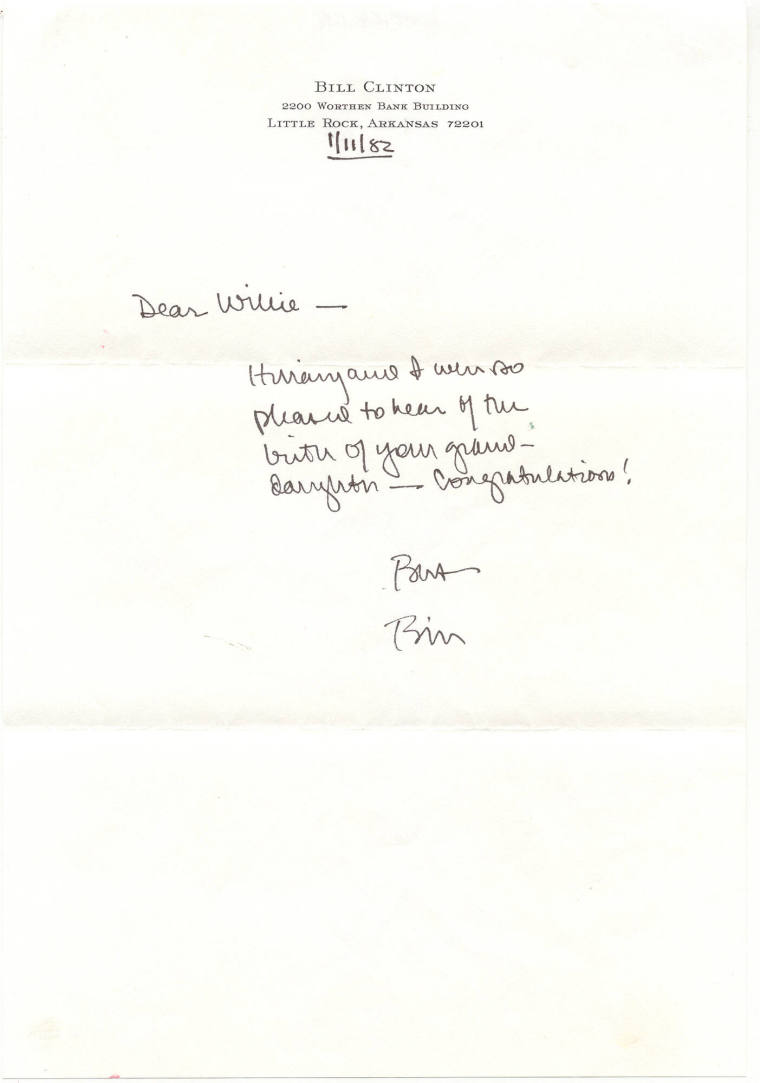 BILL CLINTON
2200 WORTHEN BANK BUILDING
LITTLE ROCK, ARKANSAS 72201
1/11/82
Dear Willie —
Hillary and I were so
pleased to hear of the
birth of your grand-
daughter — Congratulations!
Best
Bill